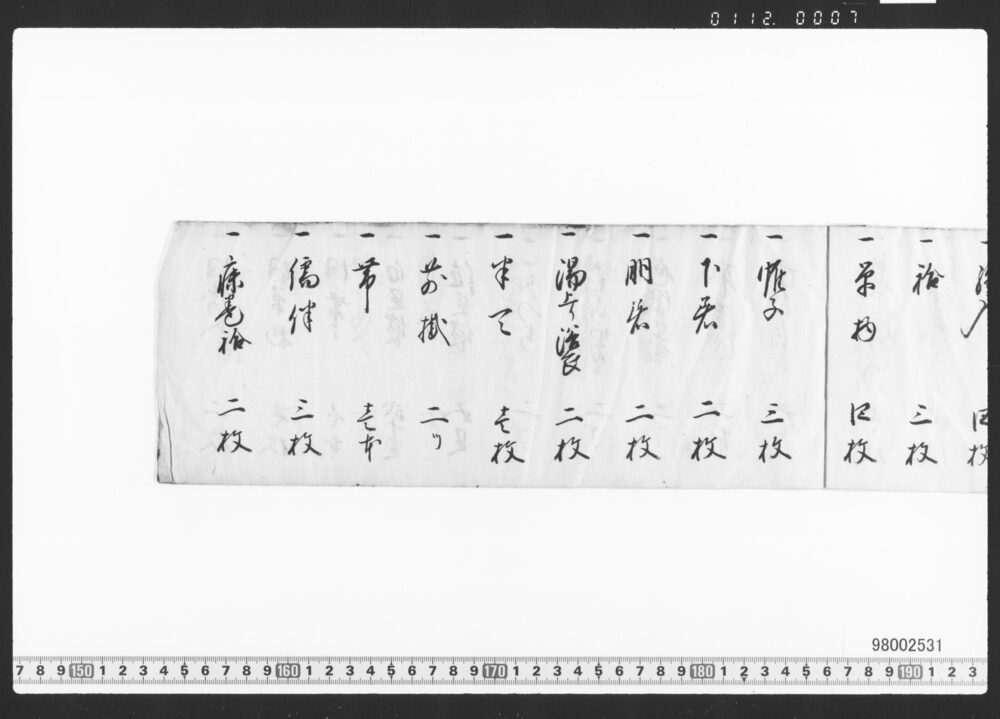 0112. 0007
四枚
一 袷 三枚
一 単物 四枚
一 帷子 三枚
一 下着 二枚
一 胴着 二枚
一 湯 二枚
一 半天 壱枚
一 前掛 二ツ
一 帯 壱本
一 襦伴 三枚
一 袷 二枚
98002531
7 8 9 150 1 2 3 4 5 6 7 8 9 160 1 2 3 4 5 6 7 8 9 170 1 2 3 4 5 6 7 8 9 180 1 2 3 4 5 6 7 8 9 190 1 2 3